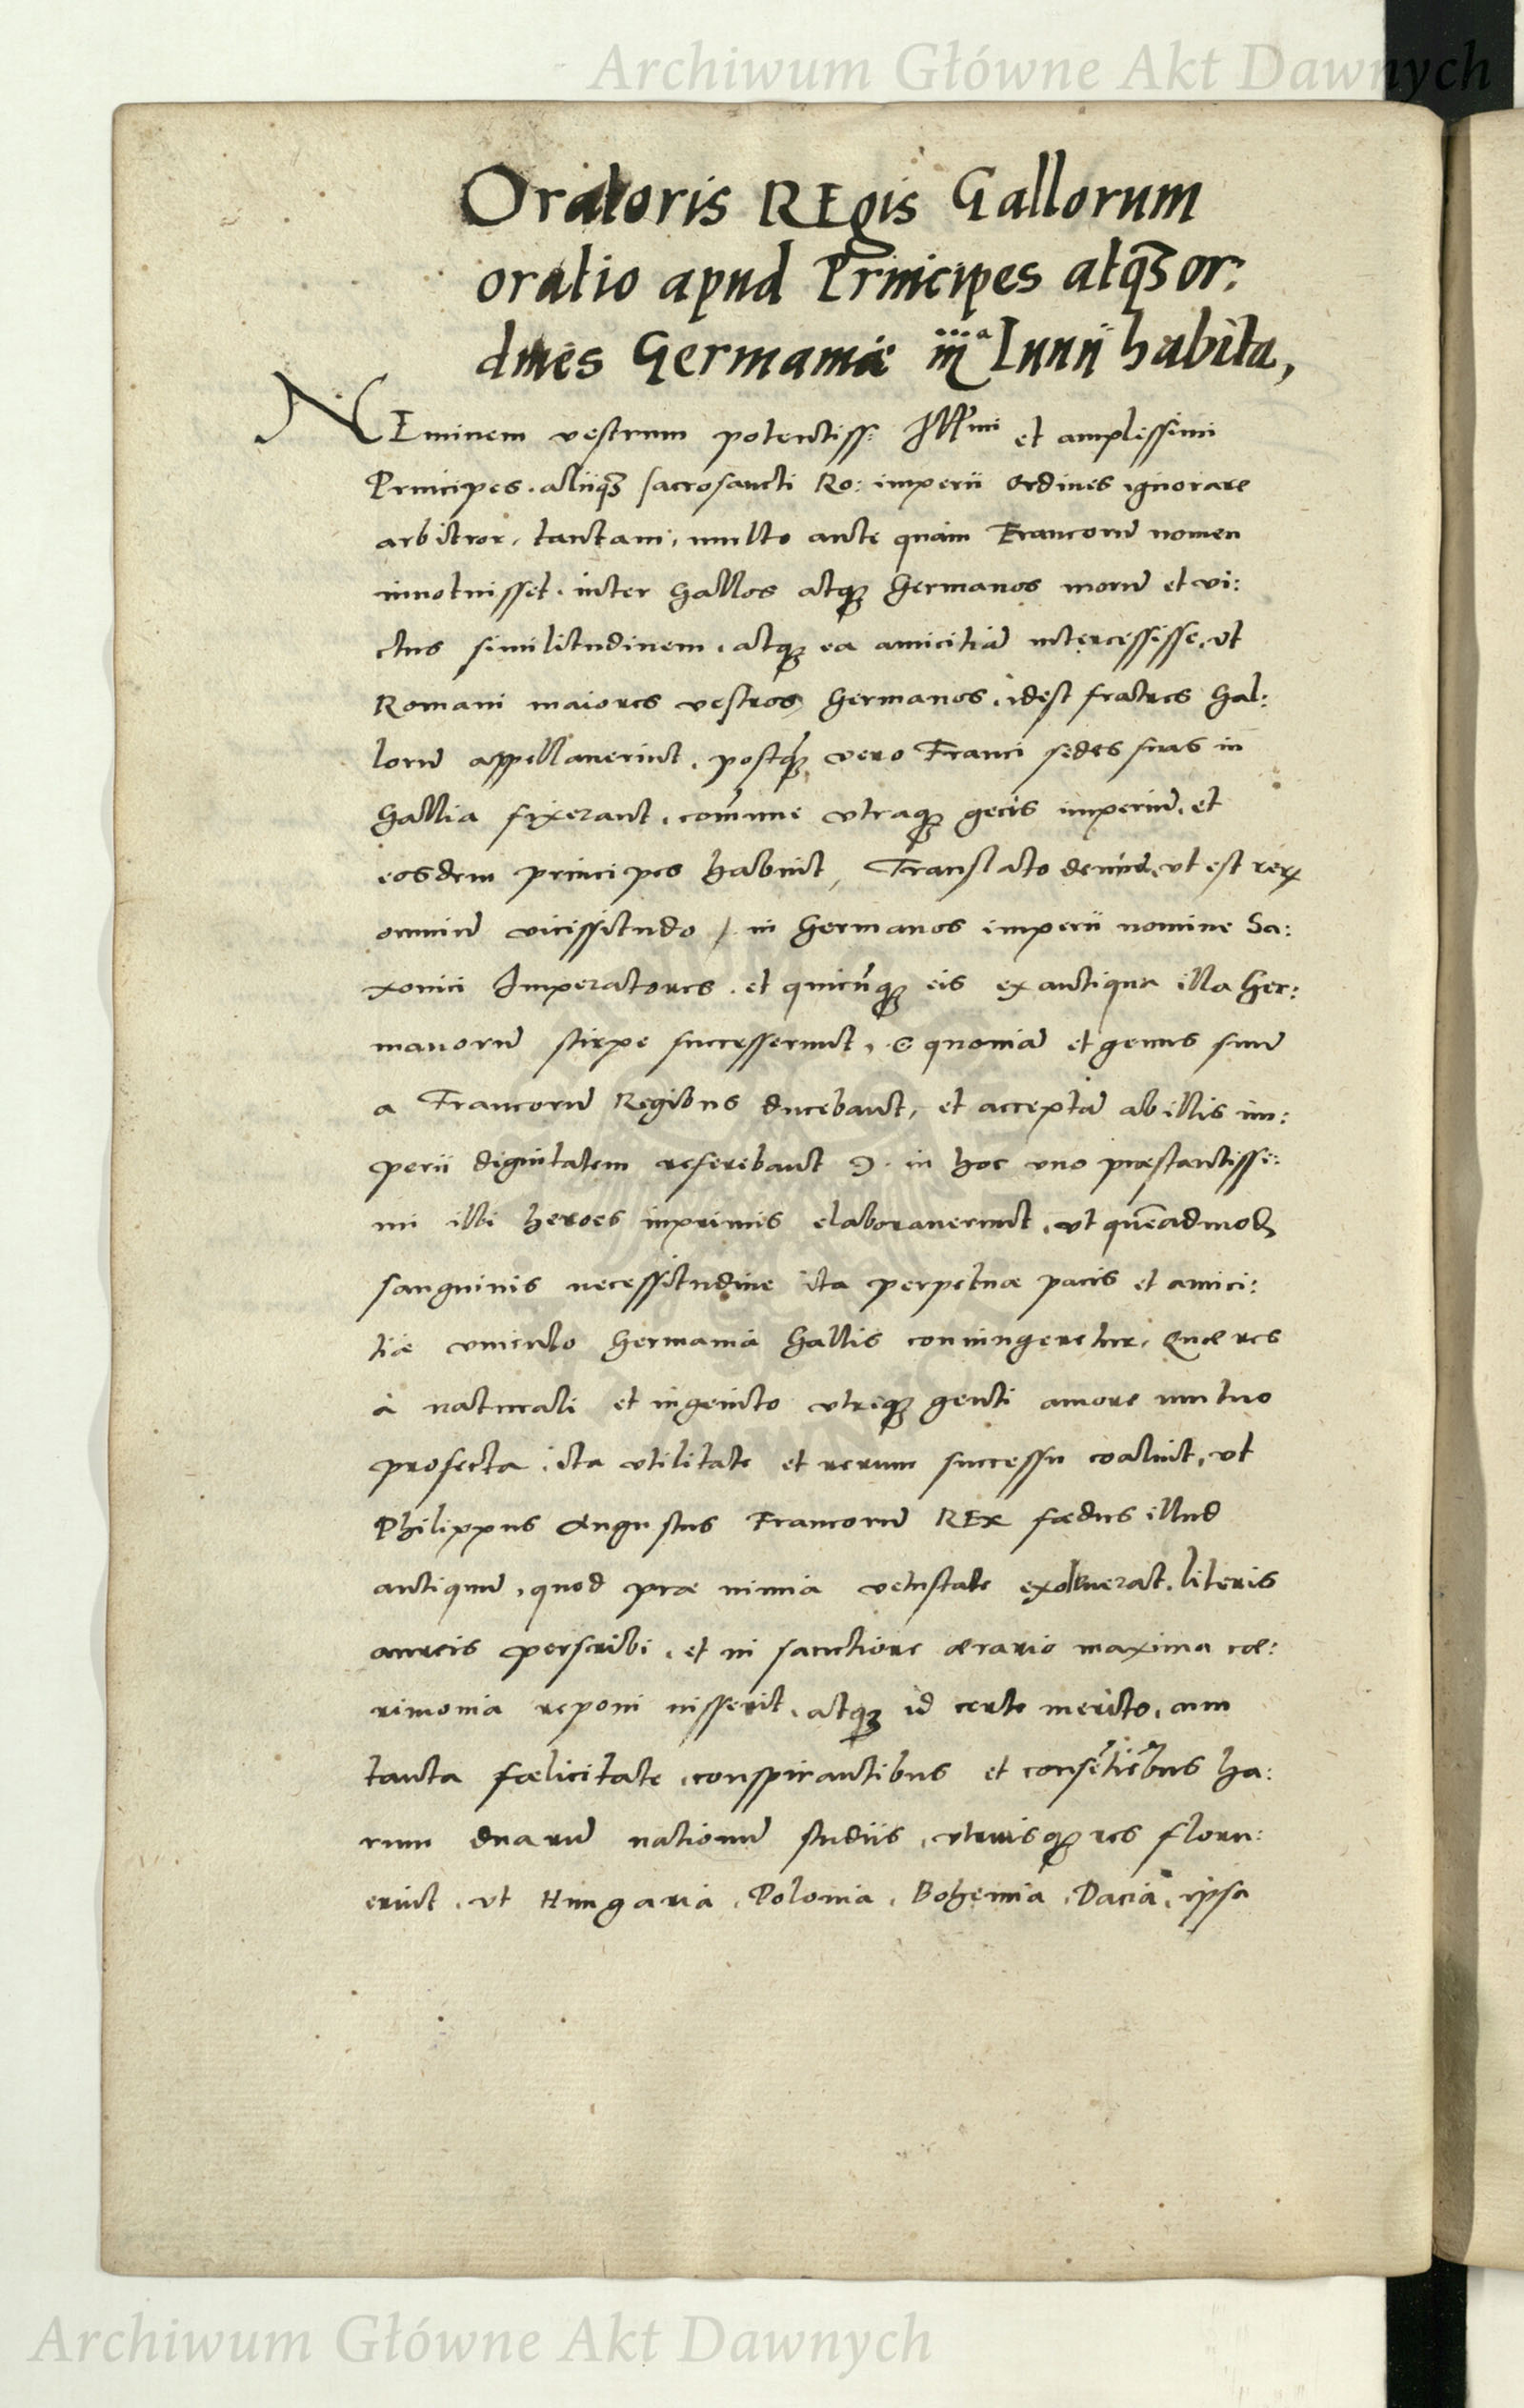 Archiwum Główne Akt Dawnych
Oratoris REgis Gallorum
oratio apud Principes atqꝫ or:
dines Germaniæ iijª Iunii habita,
NEminem vestrum potentiss: Illmi et amplissimi
Principes. aliiqꝫ sacrosancti Ro: imperii Ordines ignorare
arbitror, tantam, multo ante quàm Francorū nomen
innotuisset. inter Gallos atqꝫ Germanos morū et vi:
ctus similitudinem, atqꝫ ea amicitiā intercessisse, vt
Romani maiores vestros, Germanos, idest fratres Gal:
lorū appellauerint, postqꝫ vero Franci sedes suas in
Gallia fixerant, com̄une vtraqꝫ gēs imperiū, et
eosdem principes habuit, Translato deinde, vt est rerꝝ
omniū vicissitudo / in Germanos imperii nomine Sa:
xonici Imperatores. et quicūqꝫ eis ex antiqua illa Ger:
manorū stirpe successerunt, (quoniā et genus suū
a Francorū Regibus ducebant, et acceptā ab illis im:
perii dignitatem referebant). in hoc vno præstantissi:
mi illi heroes inprimis elaborauerunt, vt quēadmod
sanguinis necessitudine ita perpetuæ pacis et amici:
tiæ vinculo Germania Gallis coniungeretur, Quæ res
à naturali et ingenito vtriqꝫ genti amore mutuo
profecta, ita vtilitate et rerum successu coaluit, vt
Philippus Augustus Francorū REx fædus illud
antiquū, quod præ nimia vetustate exoleuerat, literis
aureis perscribi, et in sanctiore ærario maxima cæ:
rimonia reponi iusserit, atqꝫ id certe merito, cum
tanta fælicitate, conspirantibus et consētiētibus ha:
rum duarū nationū studiis, vtriusqꝫ res floru:
erint, vt Hungaria, Polonia, Bohemia, Dacia, ipsa
Archiwum Główne Akt Dawnych